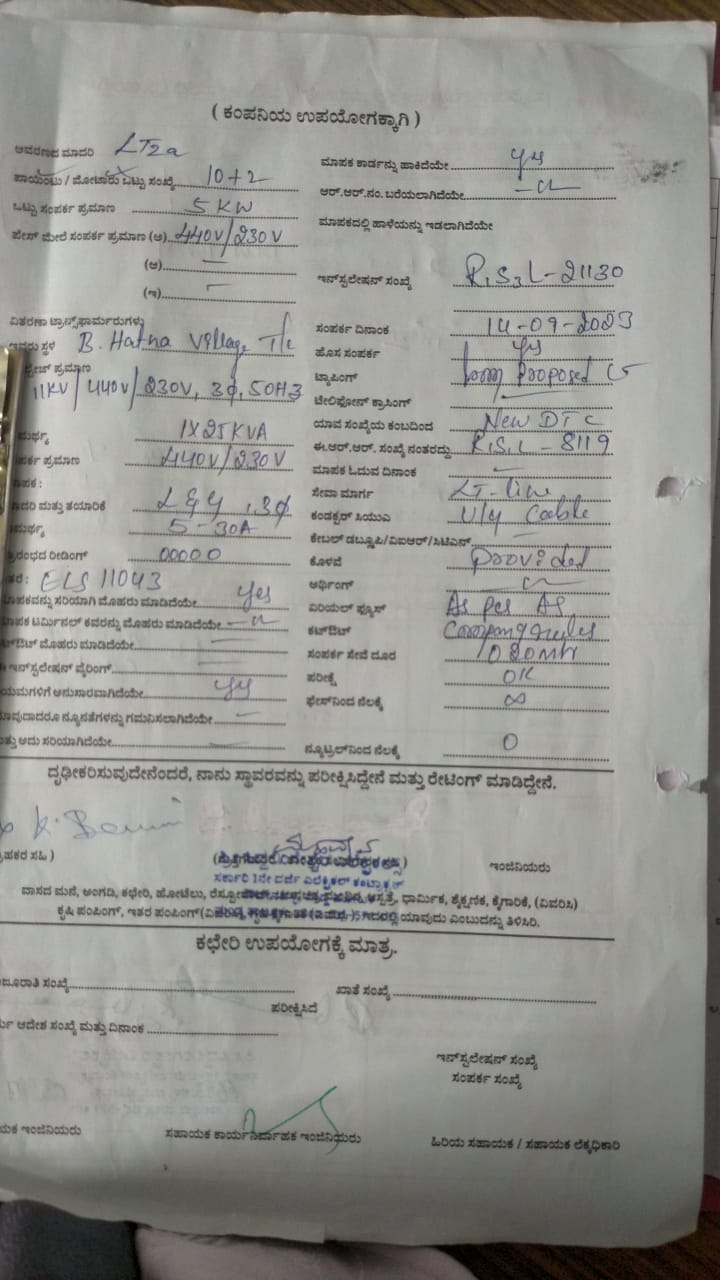 ( ಕಂಪನಿಯ ಉಪಯೋಗಕ್ಕಾಗಿ )
ಆವರಣದ ಮಾದರಿ LT2a
ಪಾಯಿಂಟು / ಮೋಟಾರು ಒಟ್ಟು ಸಂಖ್ಯೆ 10+2
ಒಟ್ಟು ಸಂಪರ್ಕ ಪ್ರಮಾಣ 5 KW
ಫೇಸ್ ಮೇಲೆ ಸಂಪರ್ಕ ಪ್ರಮಾಣ (ಅ) 440V/230V
(ಆ) —
(ಇ) —
ವಿತರಣಾ ಟ್ರಾನ್ಸ್‌ಫಾರ್ಮರುಗಳು
ಇರುವ ಸ್ಥಳ B. Hatna Village T/c
ಪ್ರಮಾಣ
11KV/440V/230V, 3Φ, 50HZ
1X25KVA
ಪ್ರಮಾಣ 440V/230V
ಮತ್ತು ತಯಾರಿಕೆ L&G, 3Φ
5-30A
ರೀಡಿಂಗ್ 00000
ELS 11043
ಸರಿಯಾಗಿ ಮೊಹರು ಮಾಡಿದೆಯೇ Yes
ಟರ್ಮಿನಲ್ ಕವರನ್ನು ಮೊಹರು ಮಾಡಿದೆಯೇ —"—
ಮೊಹರು ಮಾಡಿದೆಯೇ —
ಇನ್‌ಸ್ಟಲೇಷನ್ ವೈರಿಂಗ್ —
ಅನುಸಾರವಾಗಿದೆಯೇ Yes
ನ್ಯೂನತೆಗಳನ್ನು ಗಮನಿಸಲಾಗಿದೆಯೇ —
ಅದು ಸರಿಯಾಗಿದೆಯೇ —
ಮಾಪಕ ಕಾರ್ಡನ್ನು ಹಾಕಿದೆಯೇ Yes
ಆರ್.ಆರ್.ನಂ. ಬರೆಯಲಾಗಿದೆಯೇ —"—
ಮಾಪಕದಲ್ಲಿ ಹಾಳೆಯನ್ನು ಇಡಲಾಗಿದೆಯೇ
ಇನ್‌ಸ್ಟಲೇಷನ್ ಸಂಖ್ಯೆ R,S3L-21130
ಸಂಪರ್ಕ ದಿನಾಂಕ 14-09-2023
ಹೊಸ ಸಂಪರ್ಕ Yes
ಟ್ಯಾಪಿಂಗ್ Proposed
ಟೆಲಿಫೋನ್ ಕ್ರಾಸಿಂಗ್ —
ಯಾವ ಸಂಖ್ಯೆಯ ಕಂಬದಿಂದ New DTC
ಈ.ಆರ್.ಆರ್. ಸಂಖ್ಯೆ ನಂತರದ್ದು R.S.L-8119
ಮಾಪಕ ಓದುವ ದಿನಾಂಕ —
ಸೇವಾ ಮಾರ್ಗ LT-line
ಕಂಡಕ್ಟರ್ ಸಿಯುಎ U/g Cable
ಕೇಬಲ್ ಡಬ್ಲ್ಯೂಪಿ/ವಿಐಆರ್/ಸಿಟಿಎಸ್ —
ಕೊಳವೆ Provided
ಅರ್ಥಿಂಗ್ —"—
ಏರಿಯಲ್ ಫ್ಯೂಸ್ As per AS
ಕಟ್‌ಔಟ್ Company rules
ಸಂಪರ್ಕ ಸೇವೆ ದೂರ
ಪರೀಕ್ಷೆ OK
ಫೇಸ್‌ನಿಂದ ನೆಲಕ್ಕೆ ∞
ನ್ಯೂಟ್ರಲ್‌ನಿಂದ ನೆಲಕ್ಕೆ 0
ದೃಢೀಕರಿಸುವುದೇನೆಂದರೆ, ನಾನು ಸ್ಥಾವರವನ್ನು ಪರೀಕ್ಷಿಸಿದ್ದೇನೆ ಮತ್ತು ರೇಟಿಂಗ್ ಮಾಡಿದ್ದೇನೆ.
ಸಹಿ )
ಇಂಜಿನಿಯರು
ಸರ್ಕಾರಿ 1ನೇ ದರ್ಜೆ ಎಲೆಕ್ಟ್ರಿಕಲ್ ಕಂಟ್ರಾಕ್ಟರ್
ವಾಸದ ಮನೆ, ಅಂಗಡಿ, ಕಛೇರಿ, ಹೋಟೆಲು, ಆಸ್ಪತ್ರೆ, ಧಾರ್ಮಿಕ, ಶೈಕ್ಷಣಿಕ, ಕೈಗಾರಿಕೆ, (ವಿವರಿಸಿ)
ಕೃಷಿ ಪಂಪಿಂಗ್, ಇತರ ಪಂಪಿಂಗ್ ಇದರಲ್ಲಿ ಯಾವುದು ಎಂಬುದನ್ನು ತಿಳಿಸಿರಿ.
ಕಛೇರಿ ಉಪಯೋಗಕ್ಕೆ ಮಾತ್ರ.
ಸಂಖ್ಯೆ
ಖಾತೆ ಸಂಖ್ಯೆ
ಪರೀಕ್ಷಿಸಿದೆ
ಆದೇಶ ಸಂಖ್ಯೆ ಮತ್ತು ದಿನಾಂಕ
ಇನ್‌ಸ್ಟಲೇಷನ್ ಸಂಖ್ಯೆ
ಸಂಪರ್ಕ ಸಂಖ್ಯೆ
ಇಂಜಿನಿಯರು
ಸಹಾಯಕ ಕಾರ್ಯನಿರ್ವಾಹಕ ಇಂಜಿನಿಯರು
ಹಿರಿಯ ಸಹಾಯಕ / ಸಹಾಯಕ ಲೆಕ್ಕಾಧಿಕಾರಿ